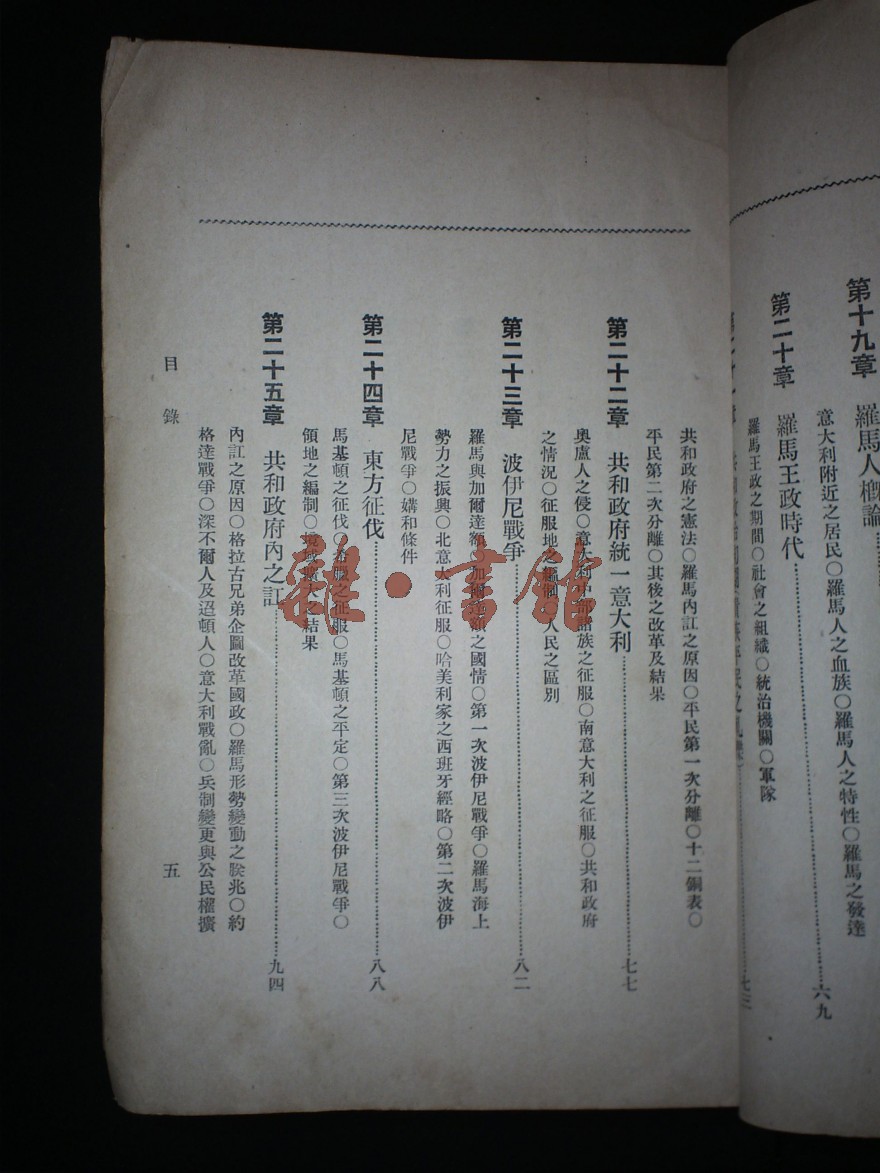 第十九章 羅馬人概論
意大利附近之居民○羅馬人之血族○羅馬人之特性○羅馬之發達
六九
第二十章 羅馬王政時代
七三
羅馬王政之期間○社會之組織○統治機關○軍隊
共和政府之憲法○羅馬內訌之原因○平民第一次分離○十二銅表○
平民第二次分離○其後之改革及結果
第二十二章 共和政府統一意大利 七七
奧盧人之侵○意大利中部諸族之征服○南意大利之征服○共和政府
之情況○征服地之編制○人民之區別
第二十三章 波伊尼戰爭 八二
羅馬與加爾達額○加爾達額之國情○第一次波伊尼戰爭○羅馬海上
勢力之振興○北意大利征服○哈美利家之西班牙經略○第二次波伊
尼戰爭○媾和條件
第二十四章 東方征伐 八八
馬基頓之征伐○希臘之征服○馬基頓之平定○第三次波伊尼戰爭○
領地之編制○擴大之結果
第二十五章 共和政府內之訌 九四
內訌之原因○格拉古兄弟企圖改革國政○羅馬形勢變動之朕兆○約
格達戰爭○深不爾人及迢頓人○意大利戰亂○兵制變更與公民權擴
目錄 五
雜·書館